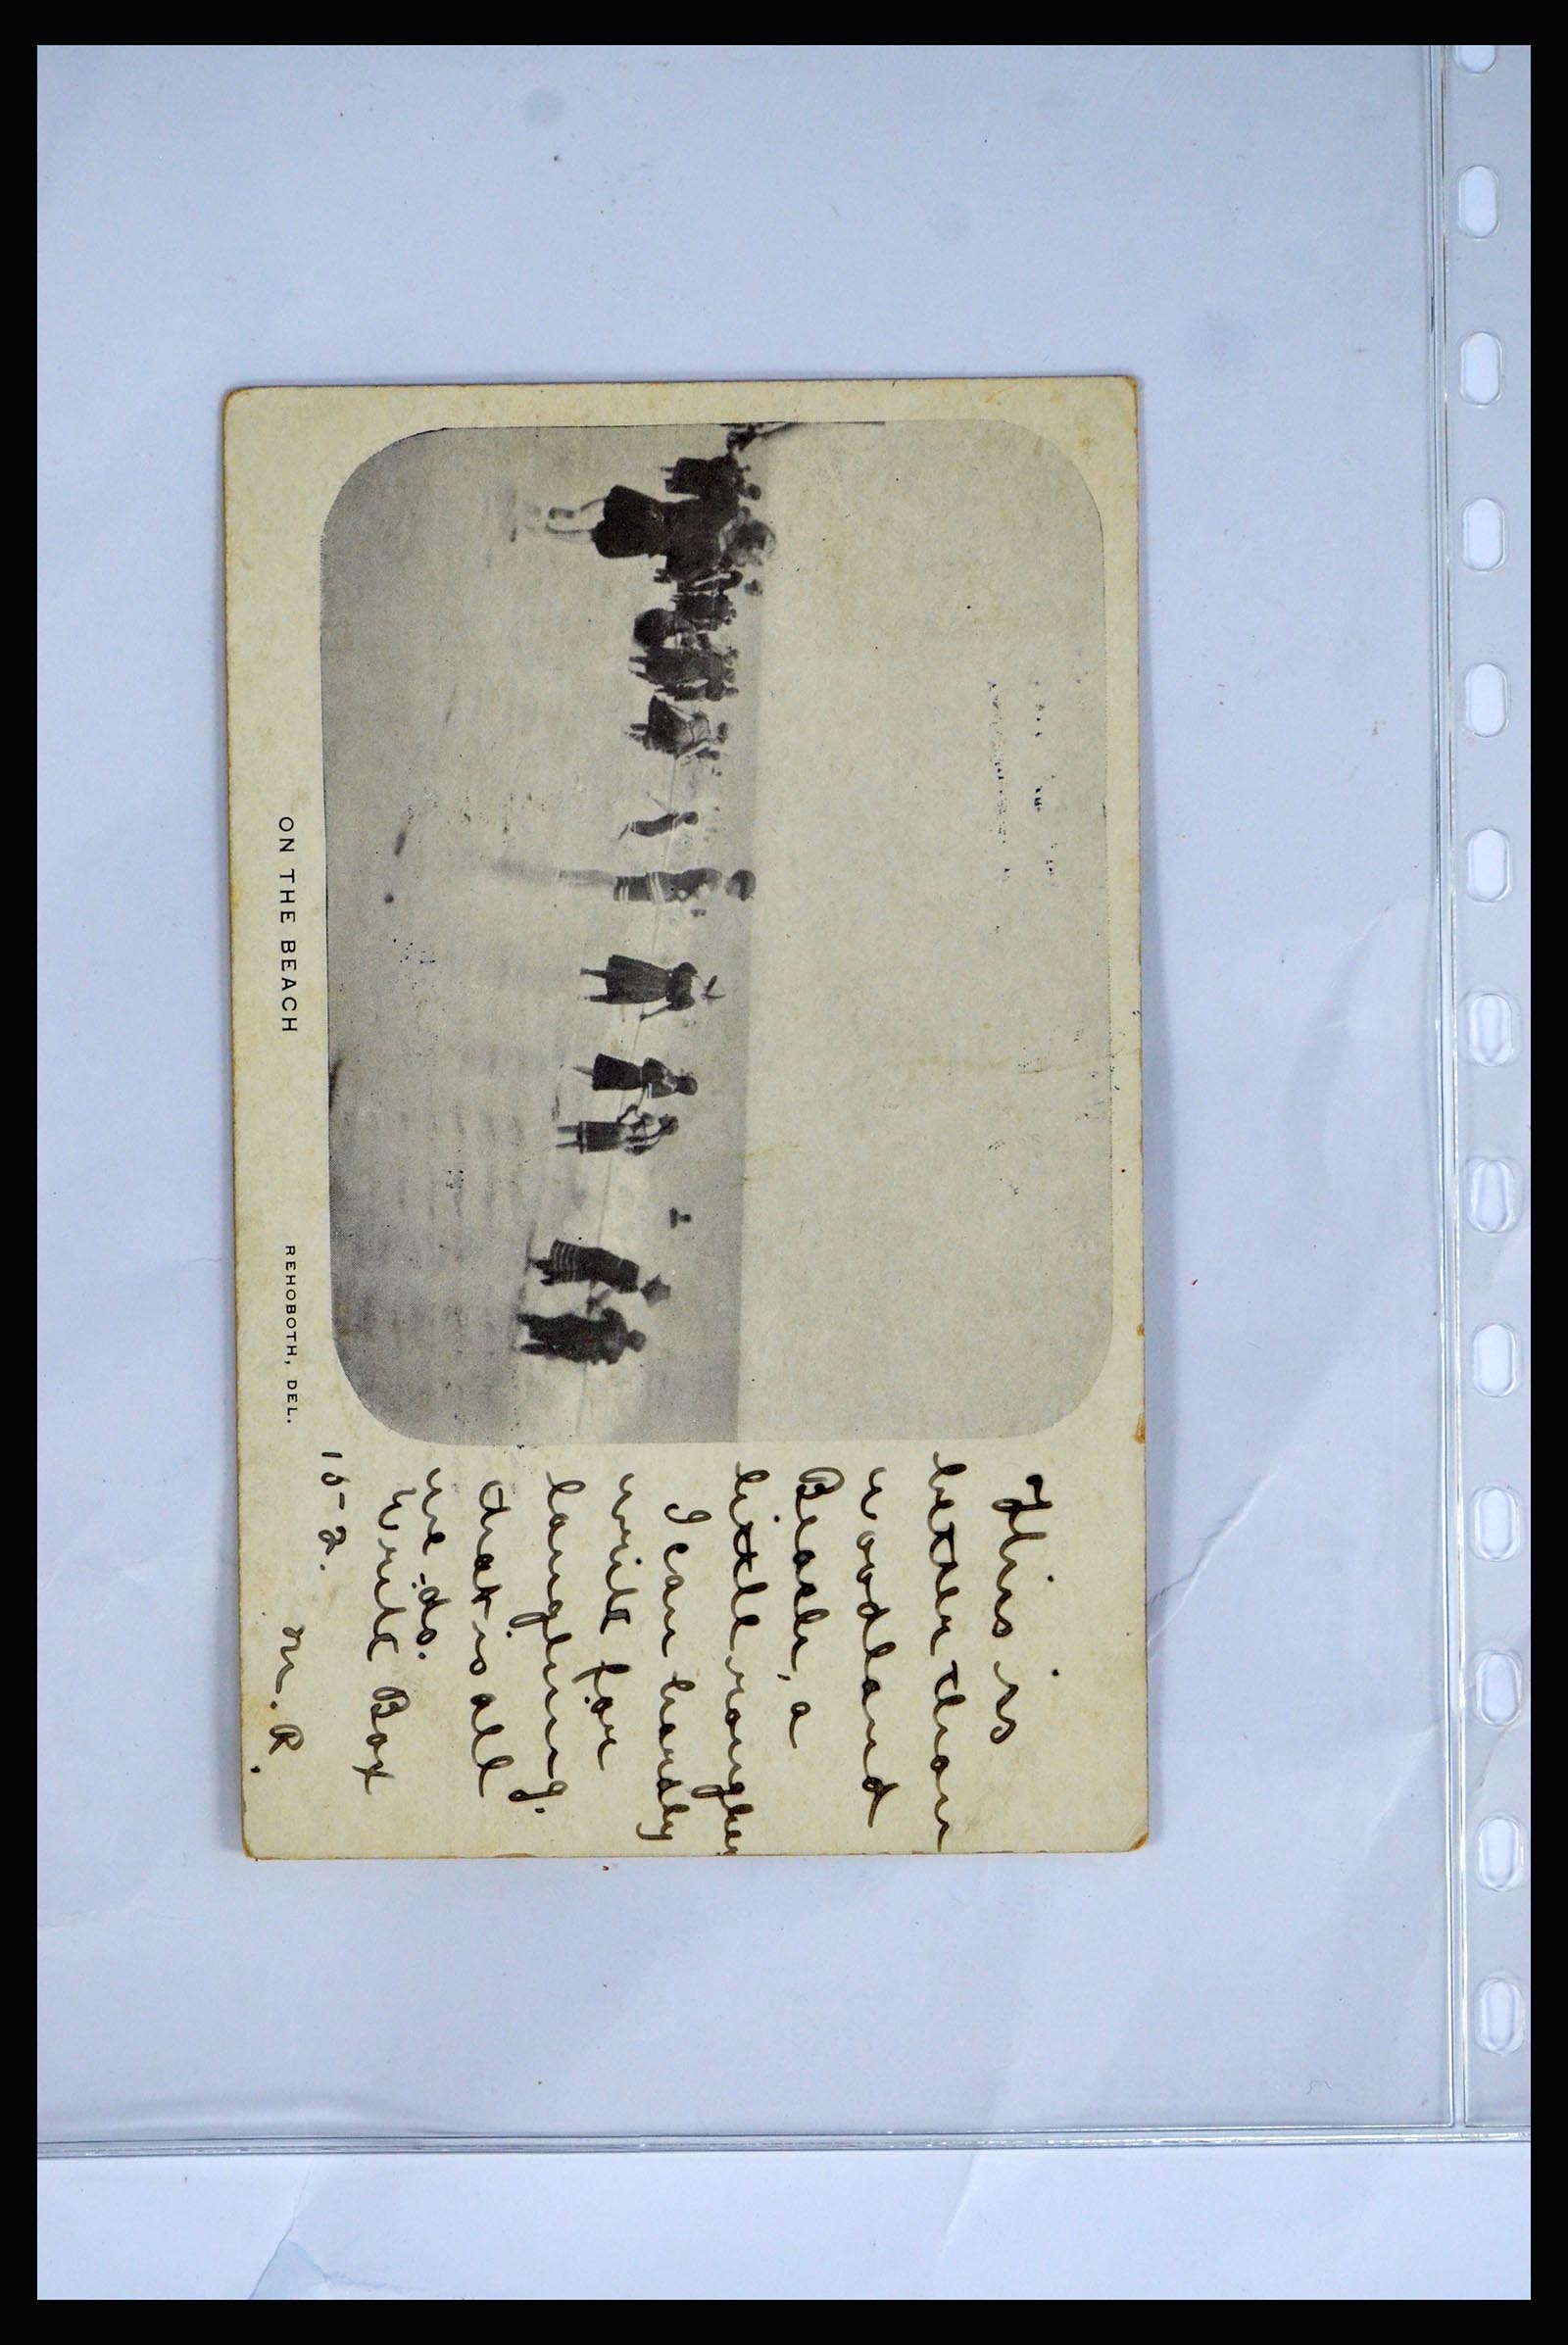 This is
better than
Woodland
Beach, a
little rougher
I can hardly
write for
laughing.
that is all
we do.
Write Box
15-2.
M. R.
ON THE BEACH
REHOBOTH, DEL.